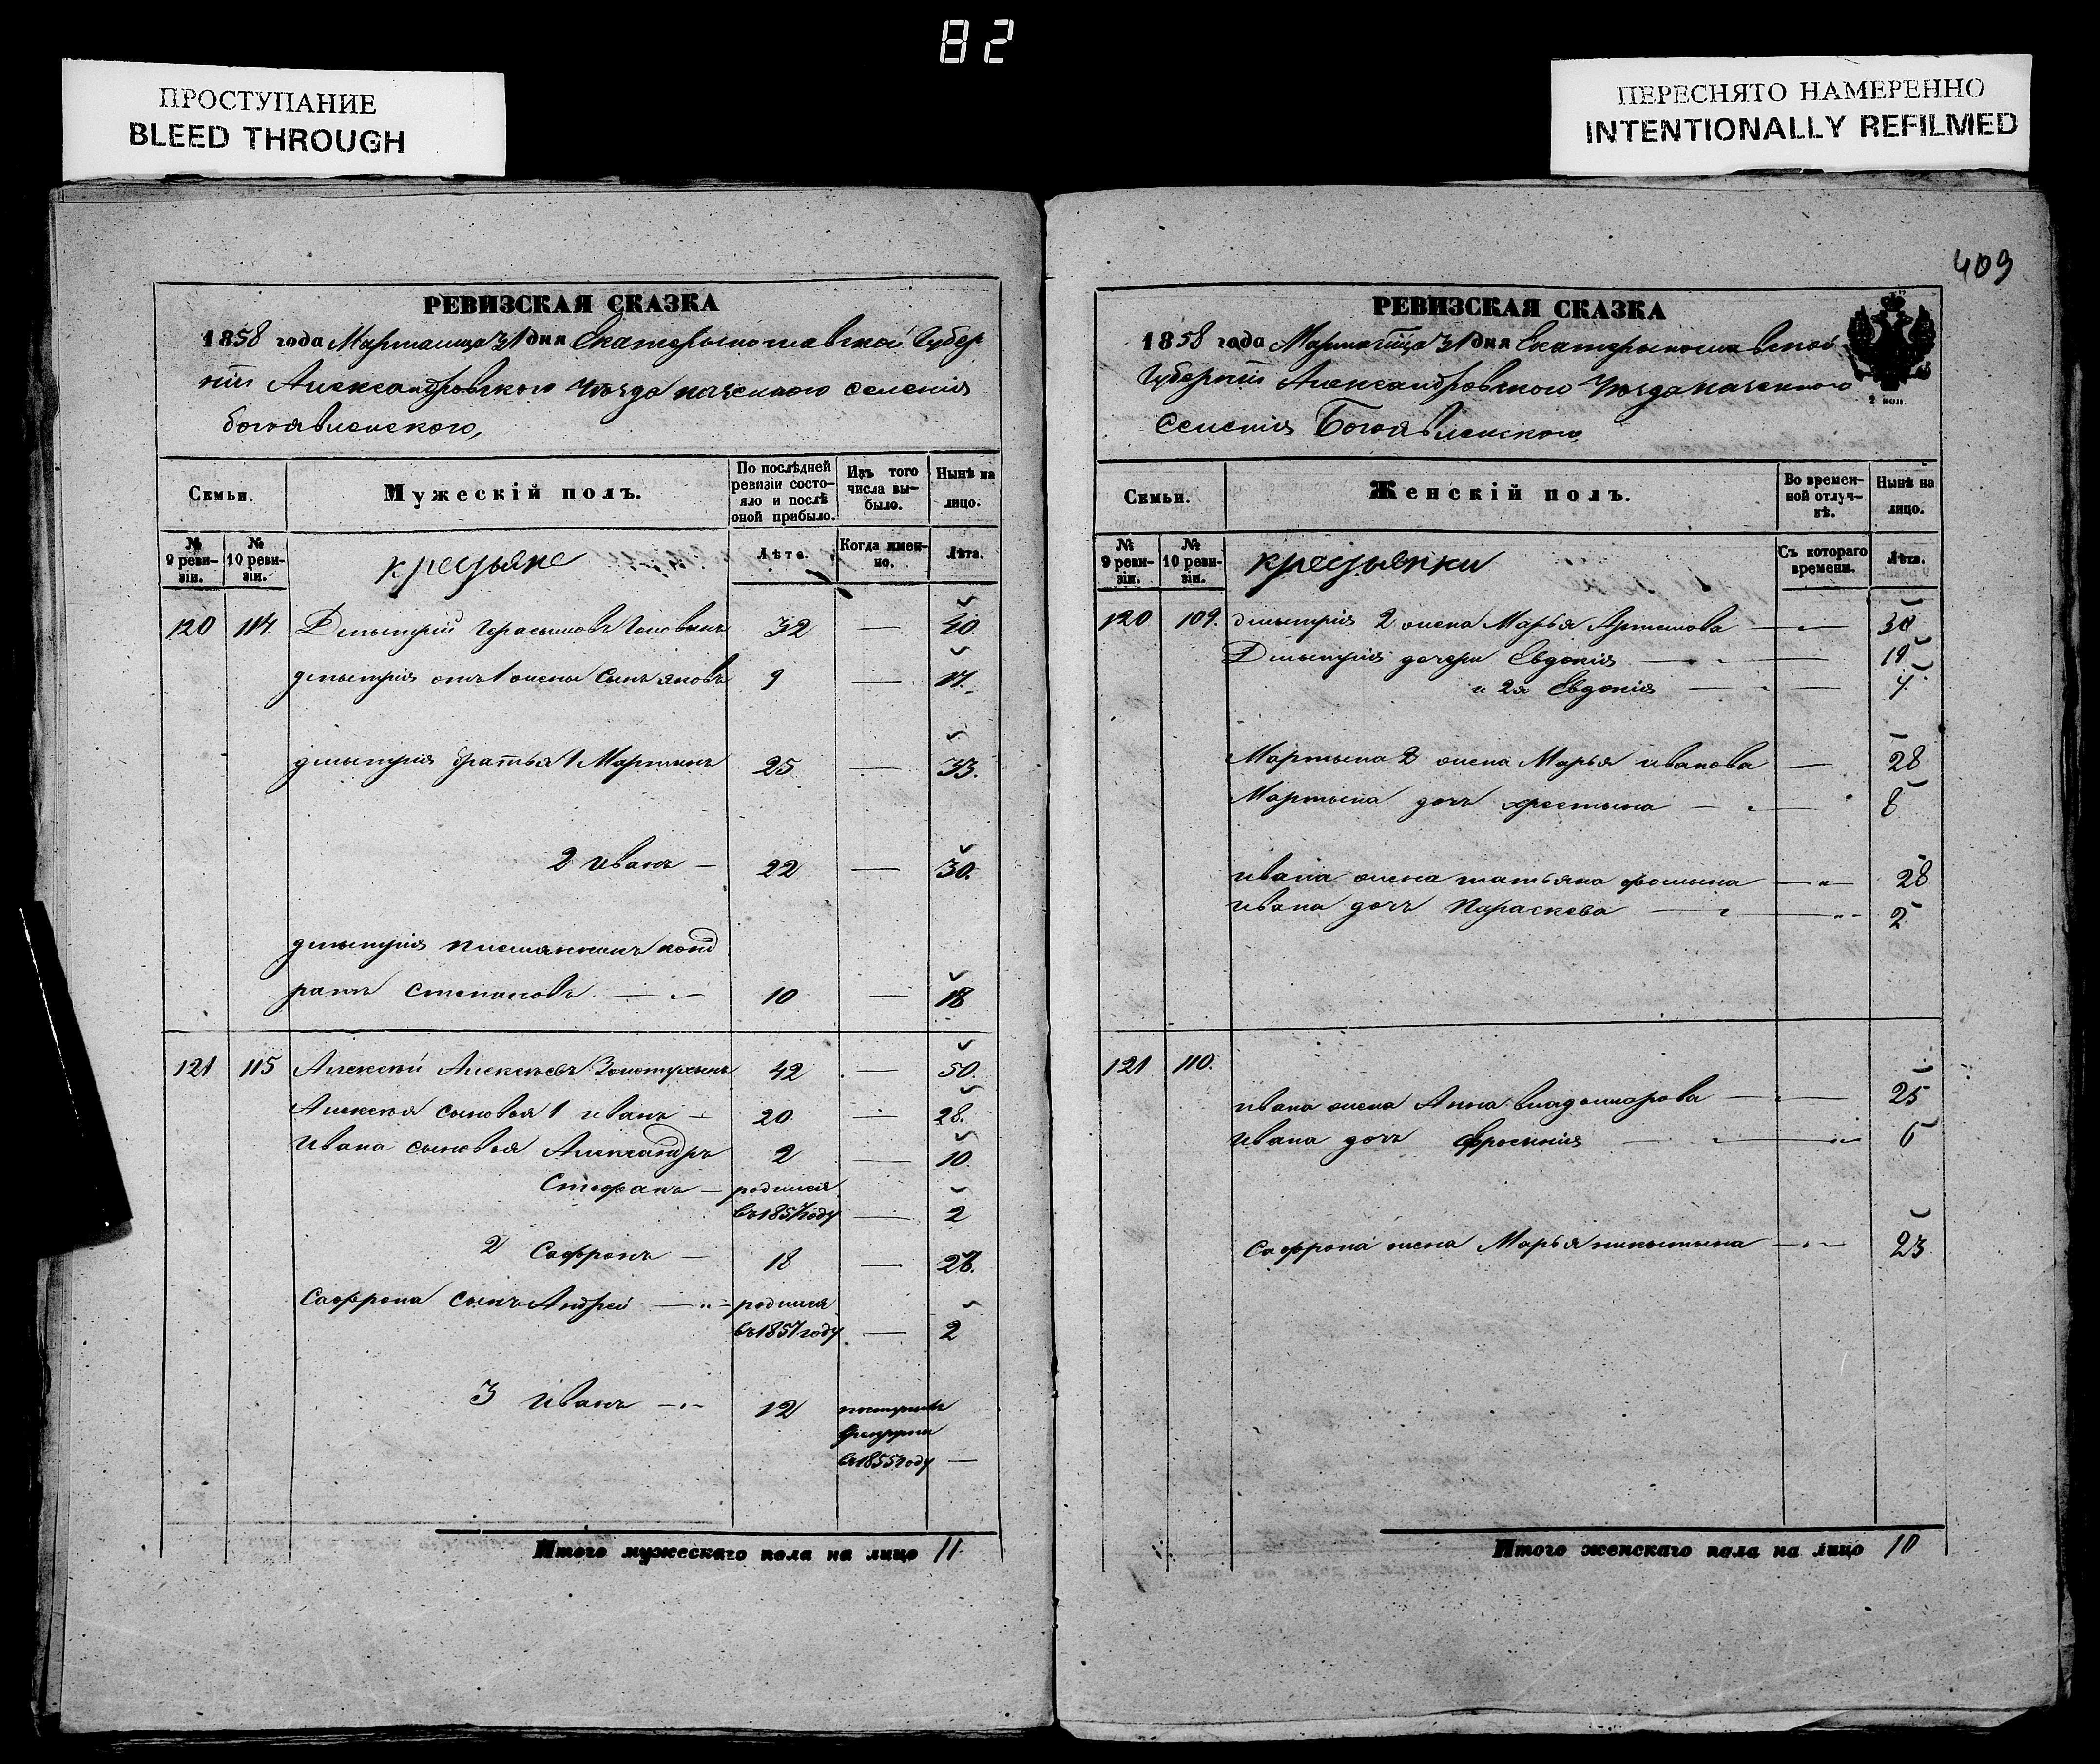 82
ПРОСТУПАНИЕ
BLEED THROUGH
ПЕРЕСНЯТО НАМЕРЕННО
INTENTIONALLY REFILMED
РЕВИЗСКАЯ СКАЗКА
1858 года Марта мца 31 дня Екатеринославской Губер
ніи Александровского Уѣзда казенного селенія
богоявленского,
Семьи.
Мужескій полъ.
По послѣдней ревизіи состояло и послѣ оной прибыло.
Изъ того числа выбыло.
Нынѣ на лицо.
№ 9 ревизіи.
№ 10 ревизіи.
крестьяне
Лѣта.
Когда именно.
Лѣта.
120 114. Дмытрій Герасымовъ 32 — 40.
дмытрія отъ 1 жены сынъ яковъ 9 — 17.
дмытрія братья 1 Мартынъ 25 — 33.
2 иванъ — 22 — 30.
дмытрія племянникъ конд
ратъ степановъ 10 — 18
121 115 Алексѣй Алексѣевъ Золотухынъ 42 — 50.
Алексѣя сыновья 1 иванъ — 20 — 28.
Ивана сыновья Александръ 2 — 10.
Стефанъ — родился
въ 1857 году — 2
2 Сафронъ — 18 — 26.
Сафрона сынъ Андрей — родился
въ 1857 году — 2
3 иванъ 12 поступилъ
врекруты
въ 1855 году —
Итого мужескаго пола на лицо 11
409
РЕВИЗСКАЯ СКАЗКА
1858 года Марта мца 31 дня Екатериносла вской
Губерніи Александровского Уѣзда казенного
Селенія Богоявленского
2 коп.
Семьи.
Женскій полъ.
Во временной отлучкѣ.
Нынѣ на лицо.
№ 9 ревизіи.
№ 10 ревизіи.
крестьянки
Съ котораго времени.
Лѣта.
120 109. дмытрія 2 жена Марья Артемова — 30
Дмытрія дочери Евдокія — 19
и 2я Евдокія — 4.
Мартына 2 жена Марья иванова — 28
Мартына дочь хрестына — 8
ивана жена татьяна фомына — 28
ивана дочь Параскева — 2
121 110.
ивана жена Анна владымирова — 25
ивана дочь ефросинія — 6
Сафрона жена Марья никытына — 23
Итого женскаго пола на лицо 10